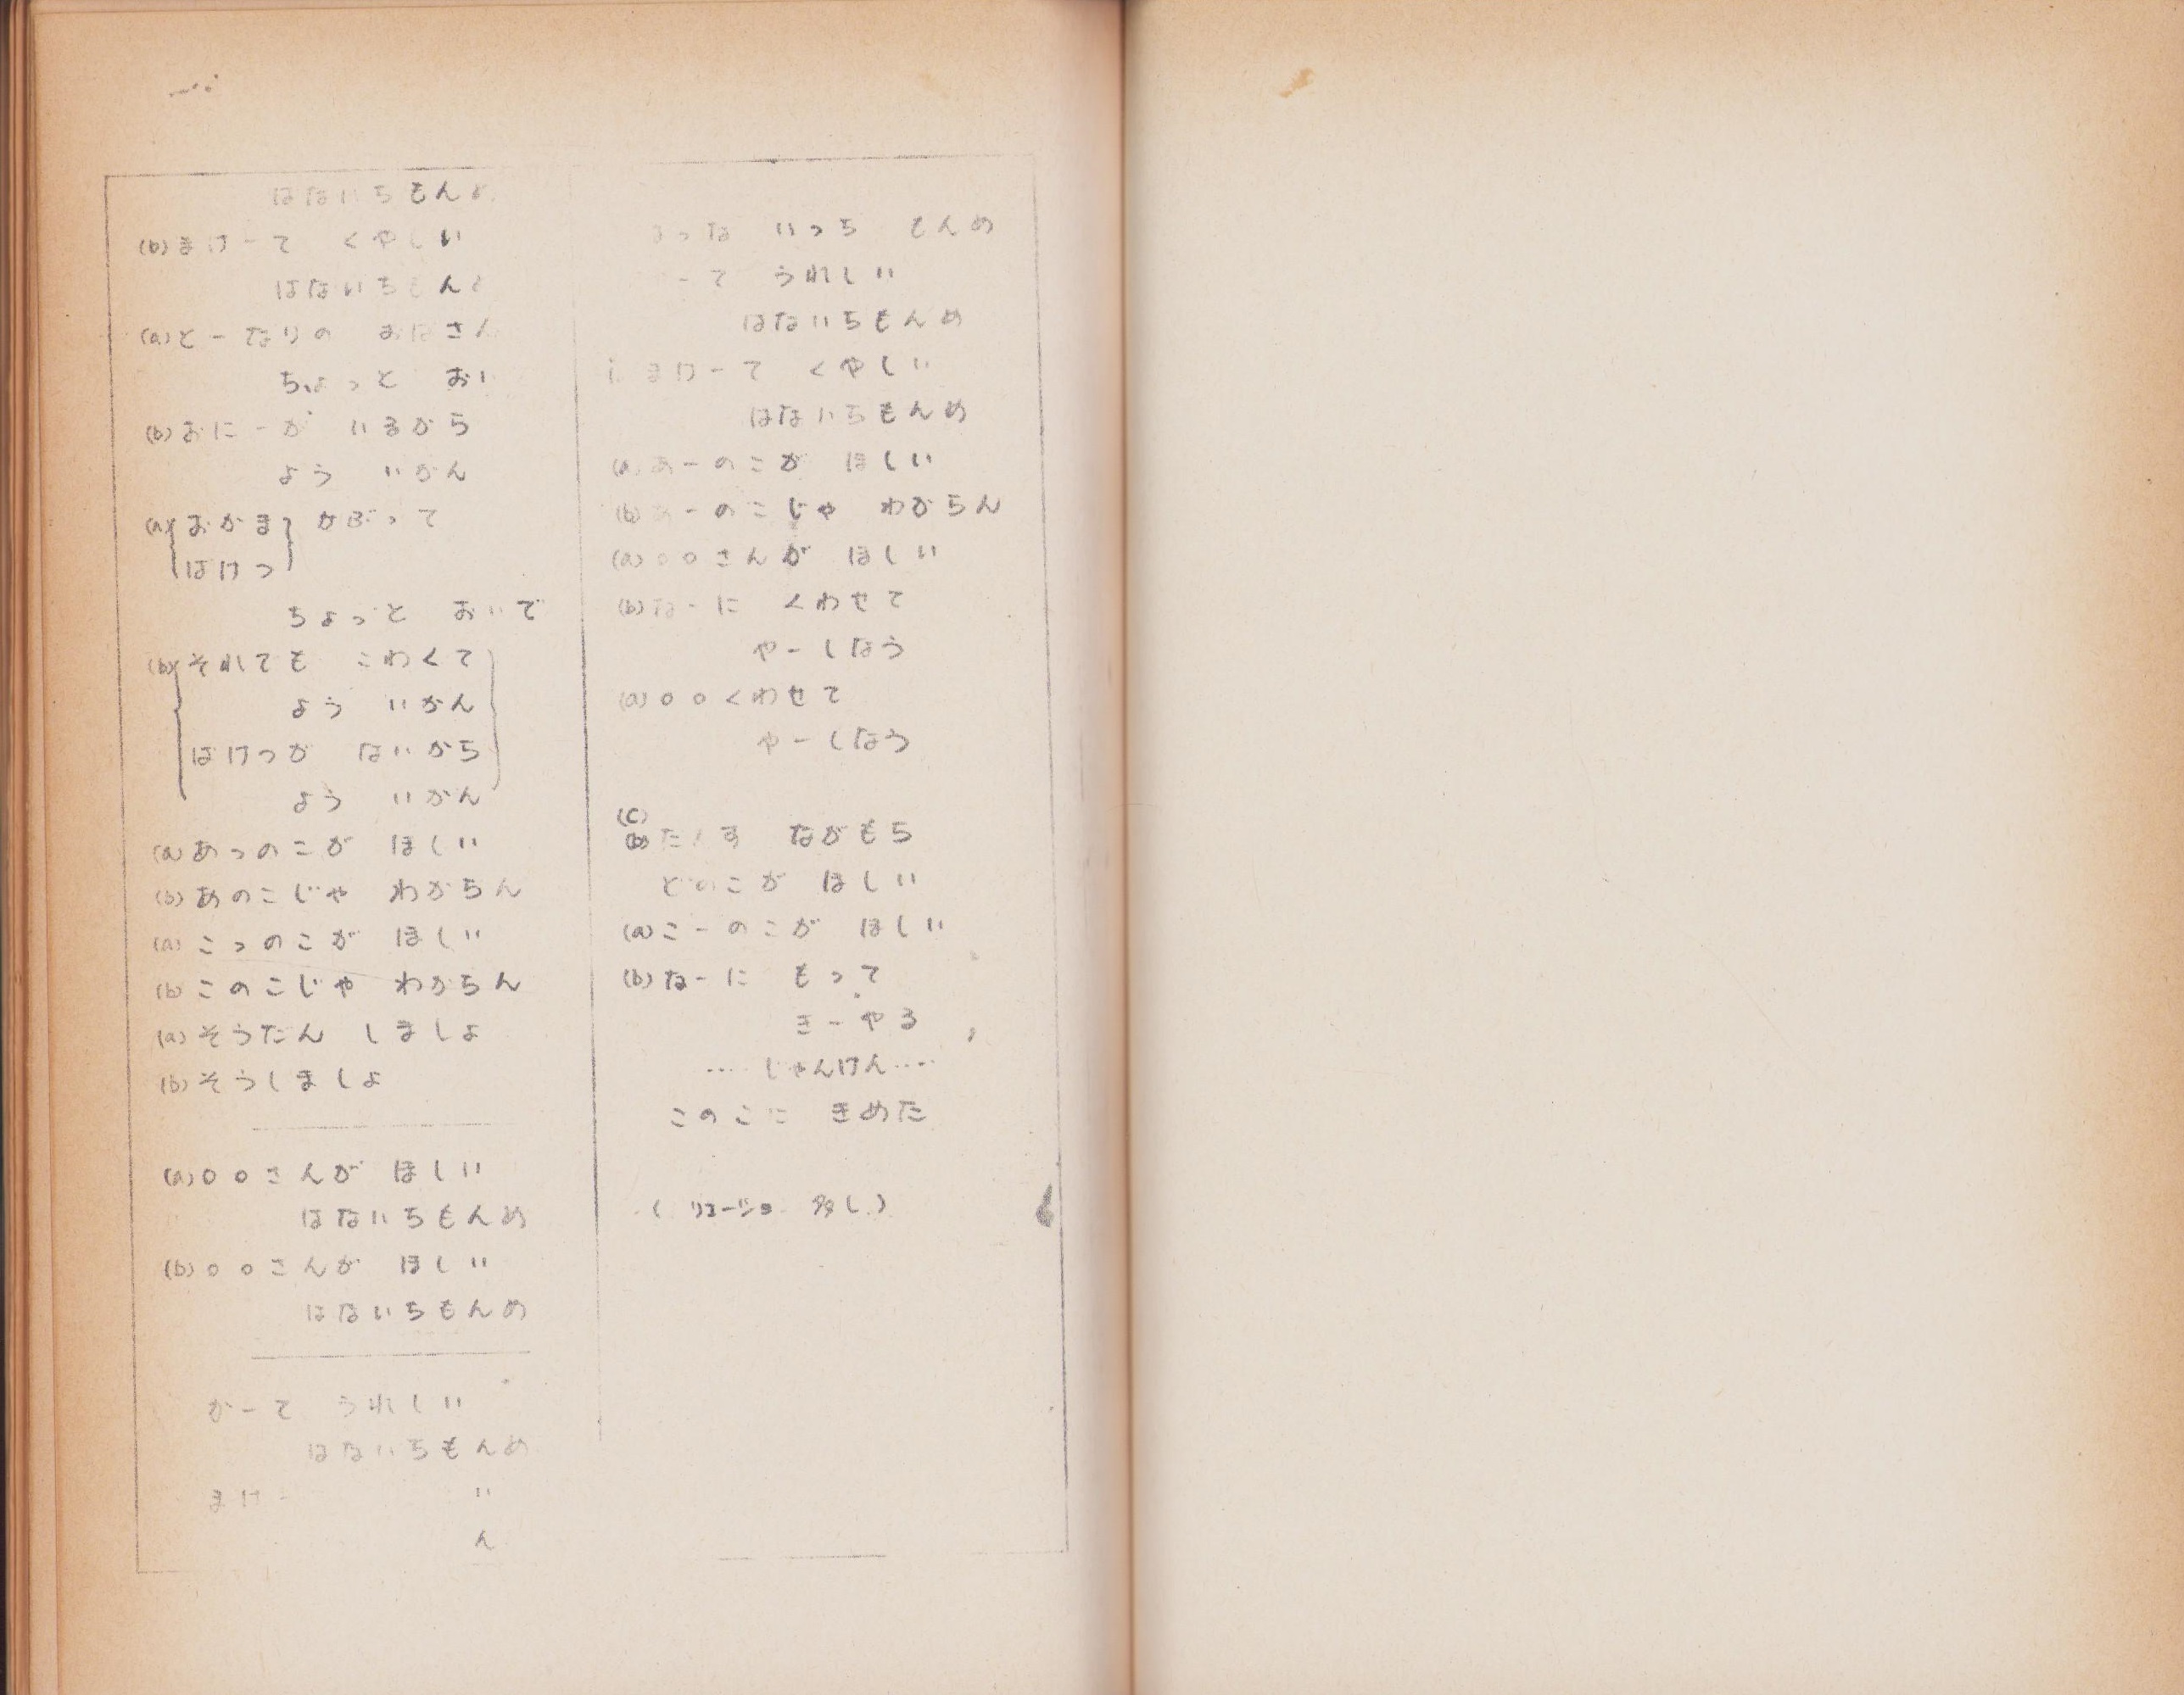 はないちもんめ
(b) まけーて くやしい
はないちもんめ
(a) とーなりの おばさん
ちょっと おい
(b) おにーが いるから
よう いかん
(a) おかま かぶって
ばけつ
ちょっと おいで
(b) それでも こわくて
よう いかん
ばけつが ないから
よう いかん
(a) あっのこが ほしい
(b) あのこじゃ わからん
(a) こっのこが ほしい
(b) このこじゃ わからん
(a) そうだん しましょ
(b) そうしましょ
(a) ○○さんが ほしい
はないちもんめ
(b) ○○さんが ほしい
はないちもんめ
かーて うれしい
はないちもんめ
まけー い
ん
っな いっち もんめ
ーて うれしい
はないちもんめ
まけーて くやしい
はないちもんめ
(a) あーのこが ほしい
(b) あーのこじゃ わからん
(a) ○○さんが ほしい
(b) なーに くわせて
やーしなう
(a) ○○くわせて
やーしなう
(c)
(b) たんす ながもち
どのこが ほしい
(a) こーのこが ほしい
(b) なーに もって
きーやる
…じゃんけん…
このこに きめた
( 多し)